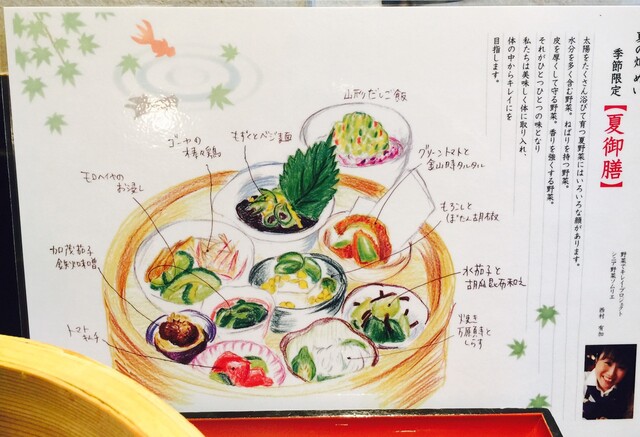 夏の畑
季節限定【夏御膳】
太陽をたくさん浴びて育つ夏野菜にはいろいろな顔があります。
水分を多く含む野菜。ねばりを持つ野菜。
皮を厚くして守る野菜。香りを強くする野菜。
それがひとつひとつの味となり
私たちは美味しく体に取り入れ、
体の中からキレイにを
目指します。
野菜でキレイ・プロジェクト
シニア野菜ソムリエ
西村 有加
山形だしご飯
グリーントマトと
金山時タルタル
もろこしと
ぼたん胡椒
水茄子と
胡麻昆布和え
焼き
万願寺と
しらす
もずくとベジ麺
ゴーヤの
棒々鶏
モロヘイヤの
お浸し
加茂茄子
トマト
キムチ